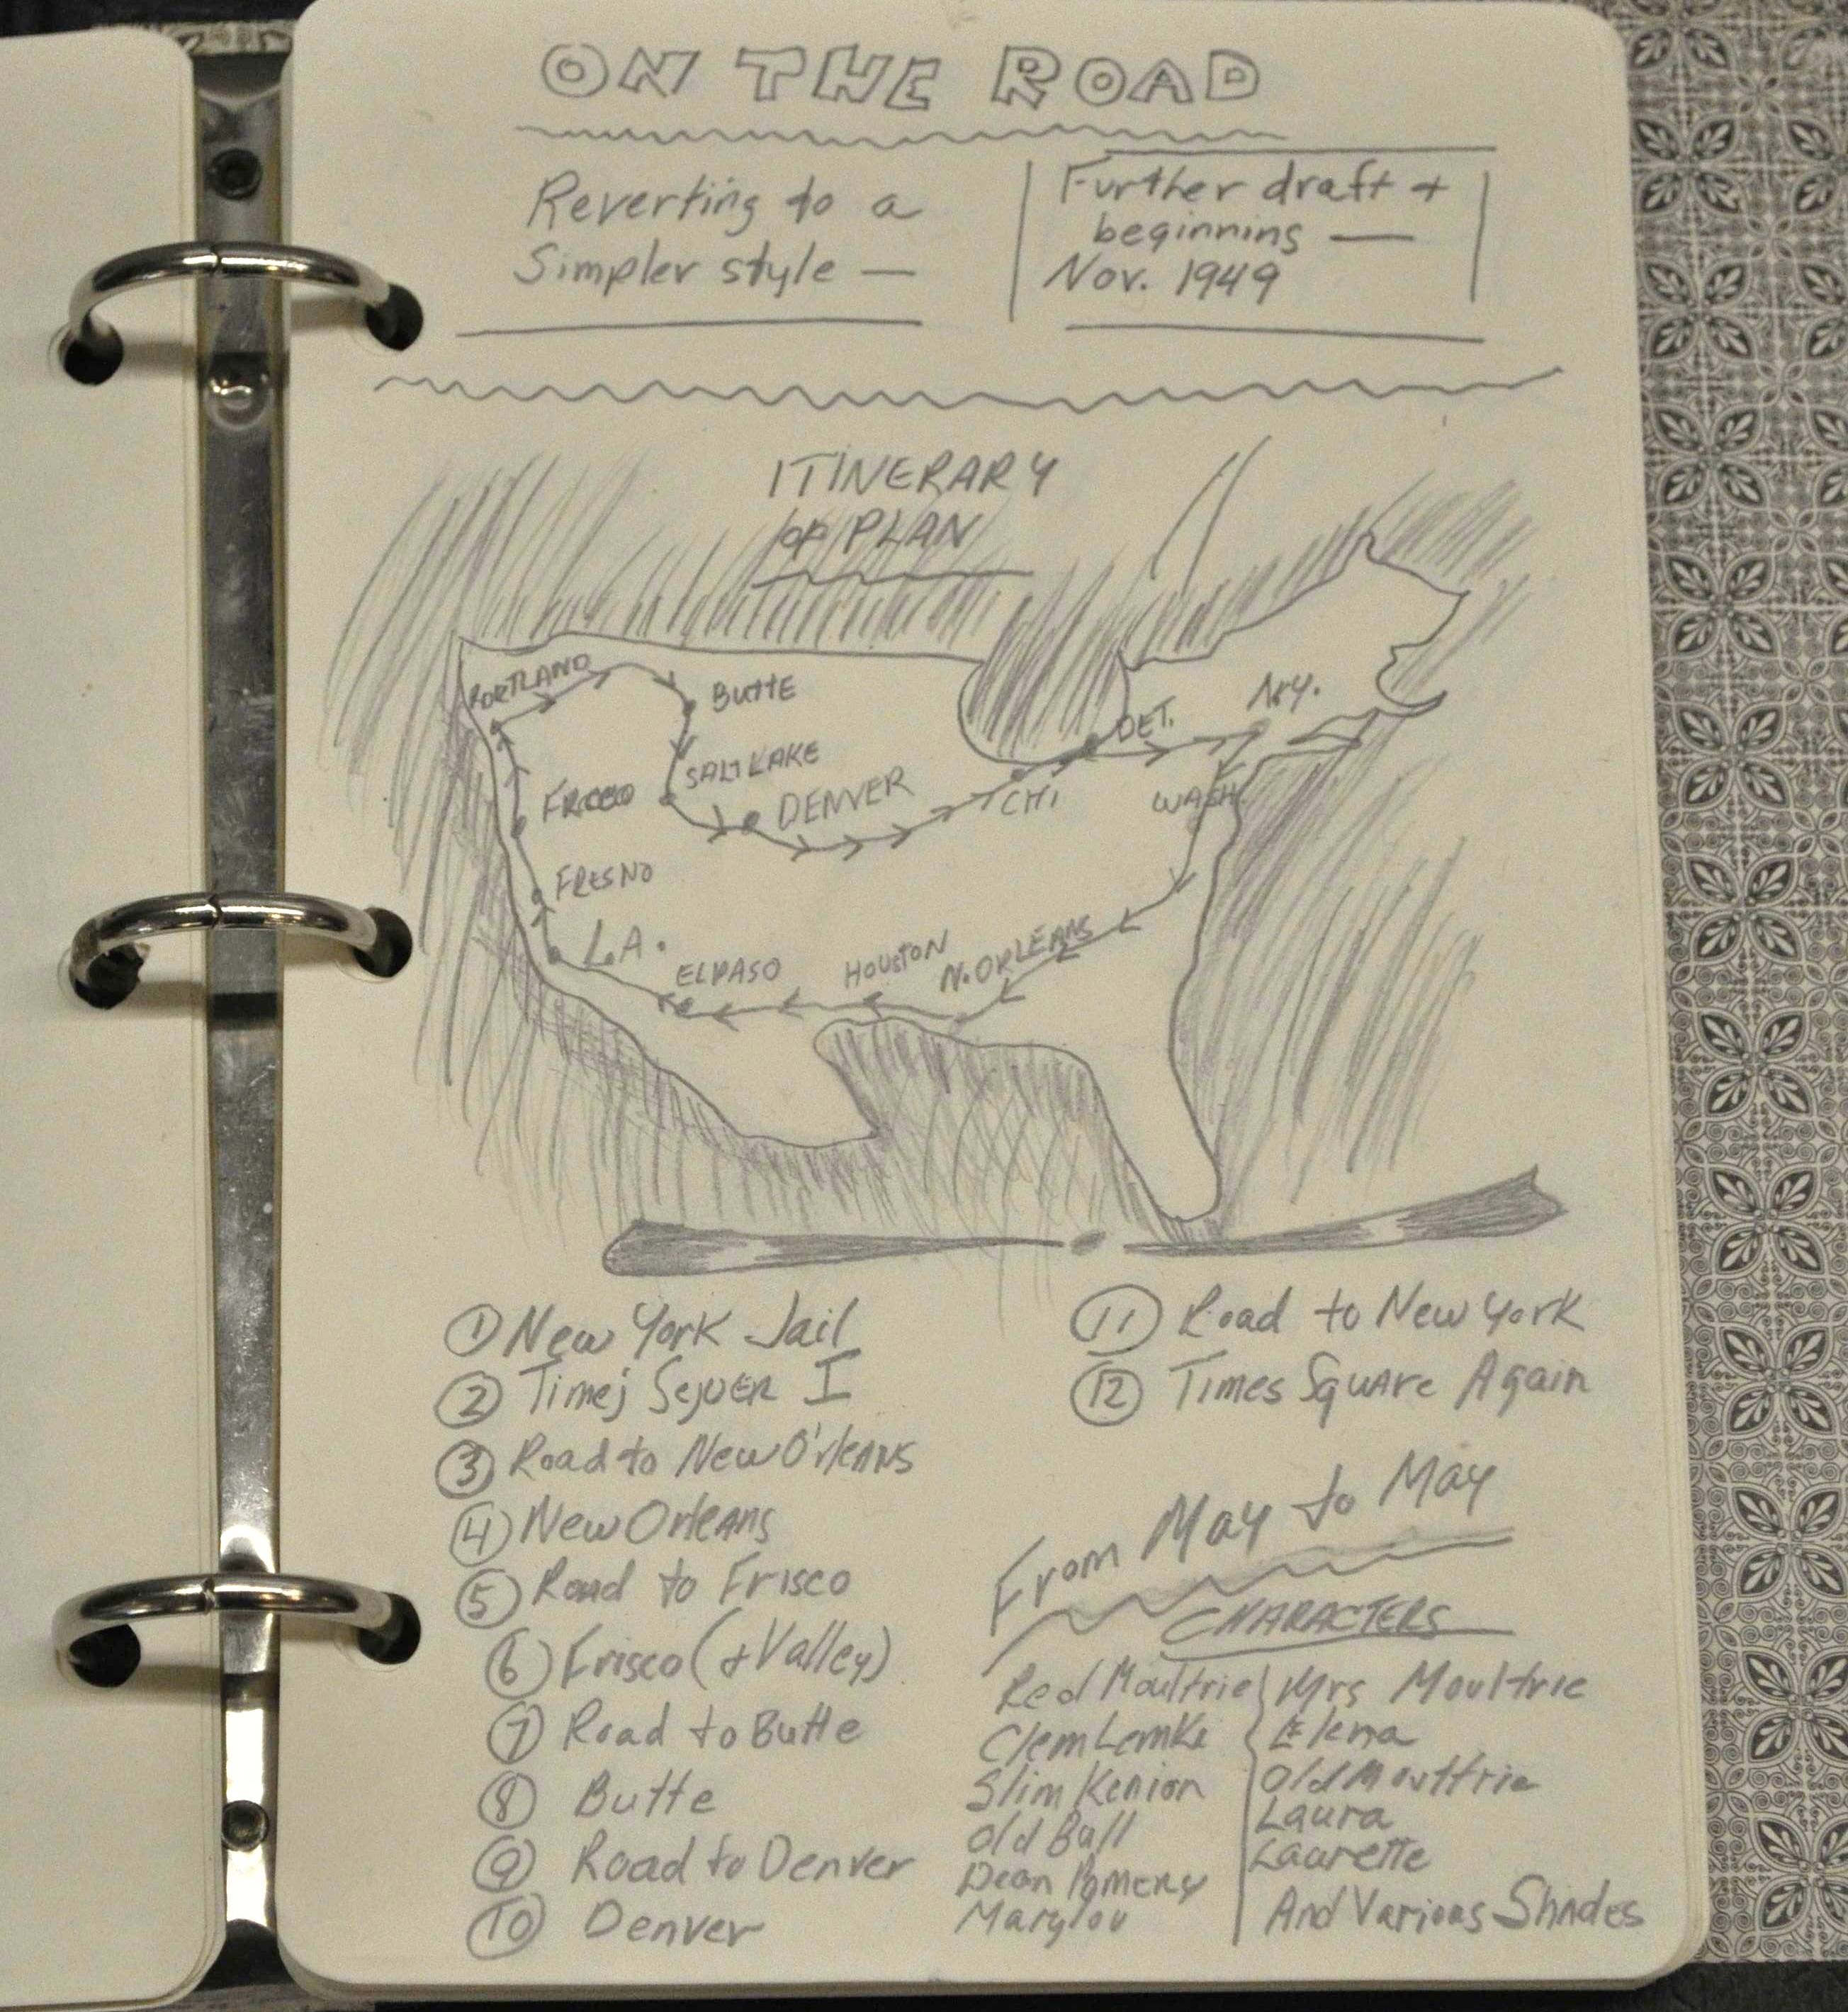 ON THE ROAD
Reverting to a
Simpler style —
Further draft +
beginning —
Nov. 1949
ITINERARY
OF PLAN
PORTLAND
BUTTE
SALT LAKE
DENVER
FRISCO
FRESNO
L.A.
ELPASO
HOUSTON
N.ORLEANS
CHI
DET.
N.Y.
WASH
① New York Jail
② Times Square I
③ Road to New Orleans
④ New Orleans
⑤ Road to Frisco
⑥ Frisco (+ Valley)
⑦ Road to Butte
⑧ Butte
⑨ Road to Denver
⑩ Denver
⑪ Road to New York
⑫ Times Square Again
From May to May
CHARACTERS
Red Moultrie
Clem Lemke
Slim Kenion
Old Bull
Dean Pomery
Marylou
Mrs Moultrie
Elena
Old Moultrie
Laura
Laurette
And Various Shades